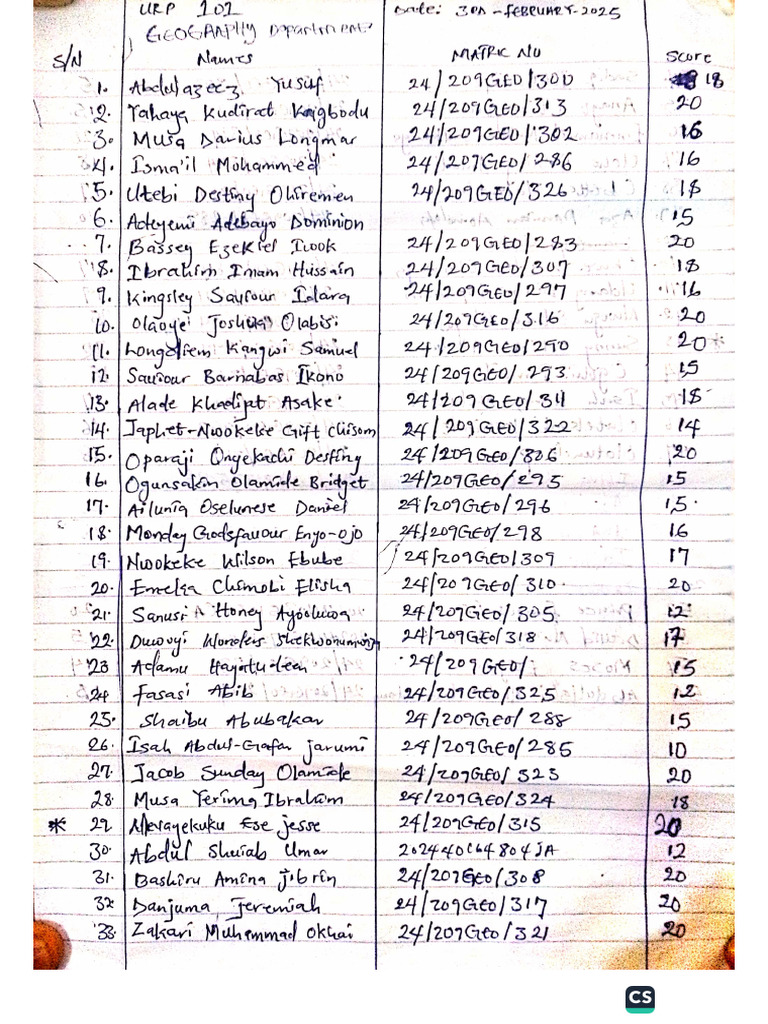 URP 102 Date: 3rd - FEBRUARY - 2025
GEOGRAPHY Department
S/N Names MATRIC NO Score
1. Abdulazeez Yusuf 24/209GEO/300 18
2. Yahaya Kudirat Kaigbodu 24/209GEO/313 20
3. Musa Darius Longmar 24/209GEO/302 16
4. Isma'il Mohammed 24/209GEO/286 16
5. Utebi Destiny Ohiremen 24/209GEO/326 18
6. Adeyemi Adebayo Dominion 15
7. Bassey Ezekiel Itook 24/209GEO/283 20
8. Ibrahim Imam Hussain 24/209GEO/307 18
9. Kingsley Saviour Idara 24/209GEO/297 16
10. Olaoye Joshua Olabisi 24/209GEO/316 20
11. Longdiem Kangwi Samuel 24/209GEO/290 20 *
12. Saviour Barnabas Ikono 24/209GEO/293 15
13. Alade Khadijat Asake 24/209GEO/311 18
14. Japhet-Nwokeke Gift Chisom 24/209GEO/322 14
15. Oparaji Onyekachi Destiny 24/209GEO/306 20
16. Ogunsakin Olamide Bridget 24/209GEO/295 15
17. Ailunia Oselunese Daniel 24/209GEO/296 15
18. Monday Godsfavour Enyo-ojo 24/209GEO/298 16
19. Nwokeke Wilson Ebube 24/209GEO/309 17
20. Emelia Chimobi Elisha 24/209GEO/310 20
21. Sanusi Honey Ayooluwa 24/209GEO/305 12
22. Wonders 24/209GEO/318 17
23 Adamu Hayatudeen 24/209GEO/ 15
24 Fasasi Abib 24/209GEO/325 12
25. Shaibu Abubakar 24/209GEO/288 15
26. Isah Abdul-Gafar jarumi 24/209GEO/285 10
27. Jacob Sunday Olamide 24/209GEO/323 20
28. Musa Yerima Ibrahim 24/209GEO/324 18
* 29. Merayekuku Ese jesse 24/209GEO/315 20
30. Abdul Shuiab Umar 20244064804JA 12
31. Bashiru Amina jibrin 24/209GEO/308 20
32. Danjuma Jeremiah 24/209GEO/317 20
33. Zakari Muhammad Okhai 24/209GEO/321 20
CS